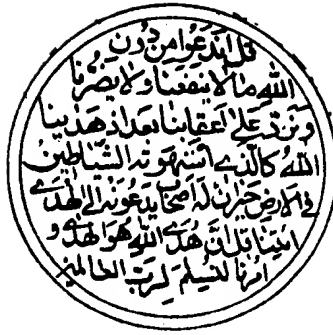 قل اندعوا من دون
الله ما لا ينفعنا ولا يضرنا
ونرد على اعقابنا بعد اذ هدينا
الله كالذي استهوته الشياطين
في الارض حيران له اصحاب يدعونه الى الهدى
ائتنا قل ان هدى الله هو الهدى و
امرنا لنسلم لرب العالمين